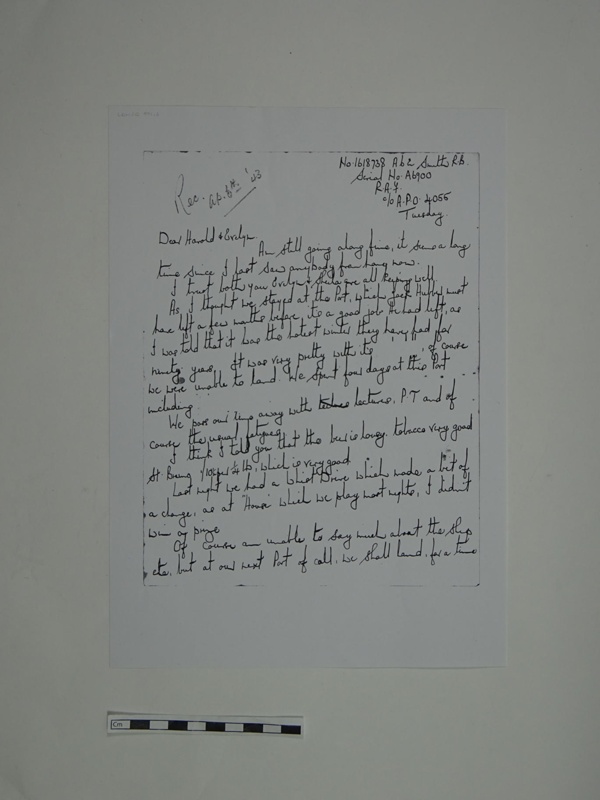 No 1618738 A b 2 Smith R.B.
Serial No A6900
R.A.F.
c/o A.P.O. 4055
Tuesday.
Rec. Ap. 6th '43
Dear Harold & Evelyn.
Am still going along fine, it seems a long
time since I last saw anybody from hay now.
I trust both you Evelyn & Sheila are all keeping well.
As I thought we stayed at the Port, which Jack must
have left a few months before, its a good job he had left, as
I was told that it was the hotest winter they have had for
ninety years. It was very pretty with its " " of course
we were unable to land. We spent four days at this Port
including.
We pass our time away with lectures, P.T and of
course the usual fatigues.
I think I told you that the beer is lousy. tobacco very good
St Bruno 1/10 per ¼ lb, which is very good.
Last night we had a Whist Drive which made a bit of
a change, as at "House" which we play most nights, I didn't
win any prize.
Of course am unable to say much about the ship
etc, but at our next Port of call, we shall land, for a time
Cm